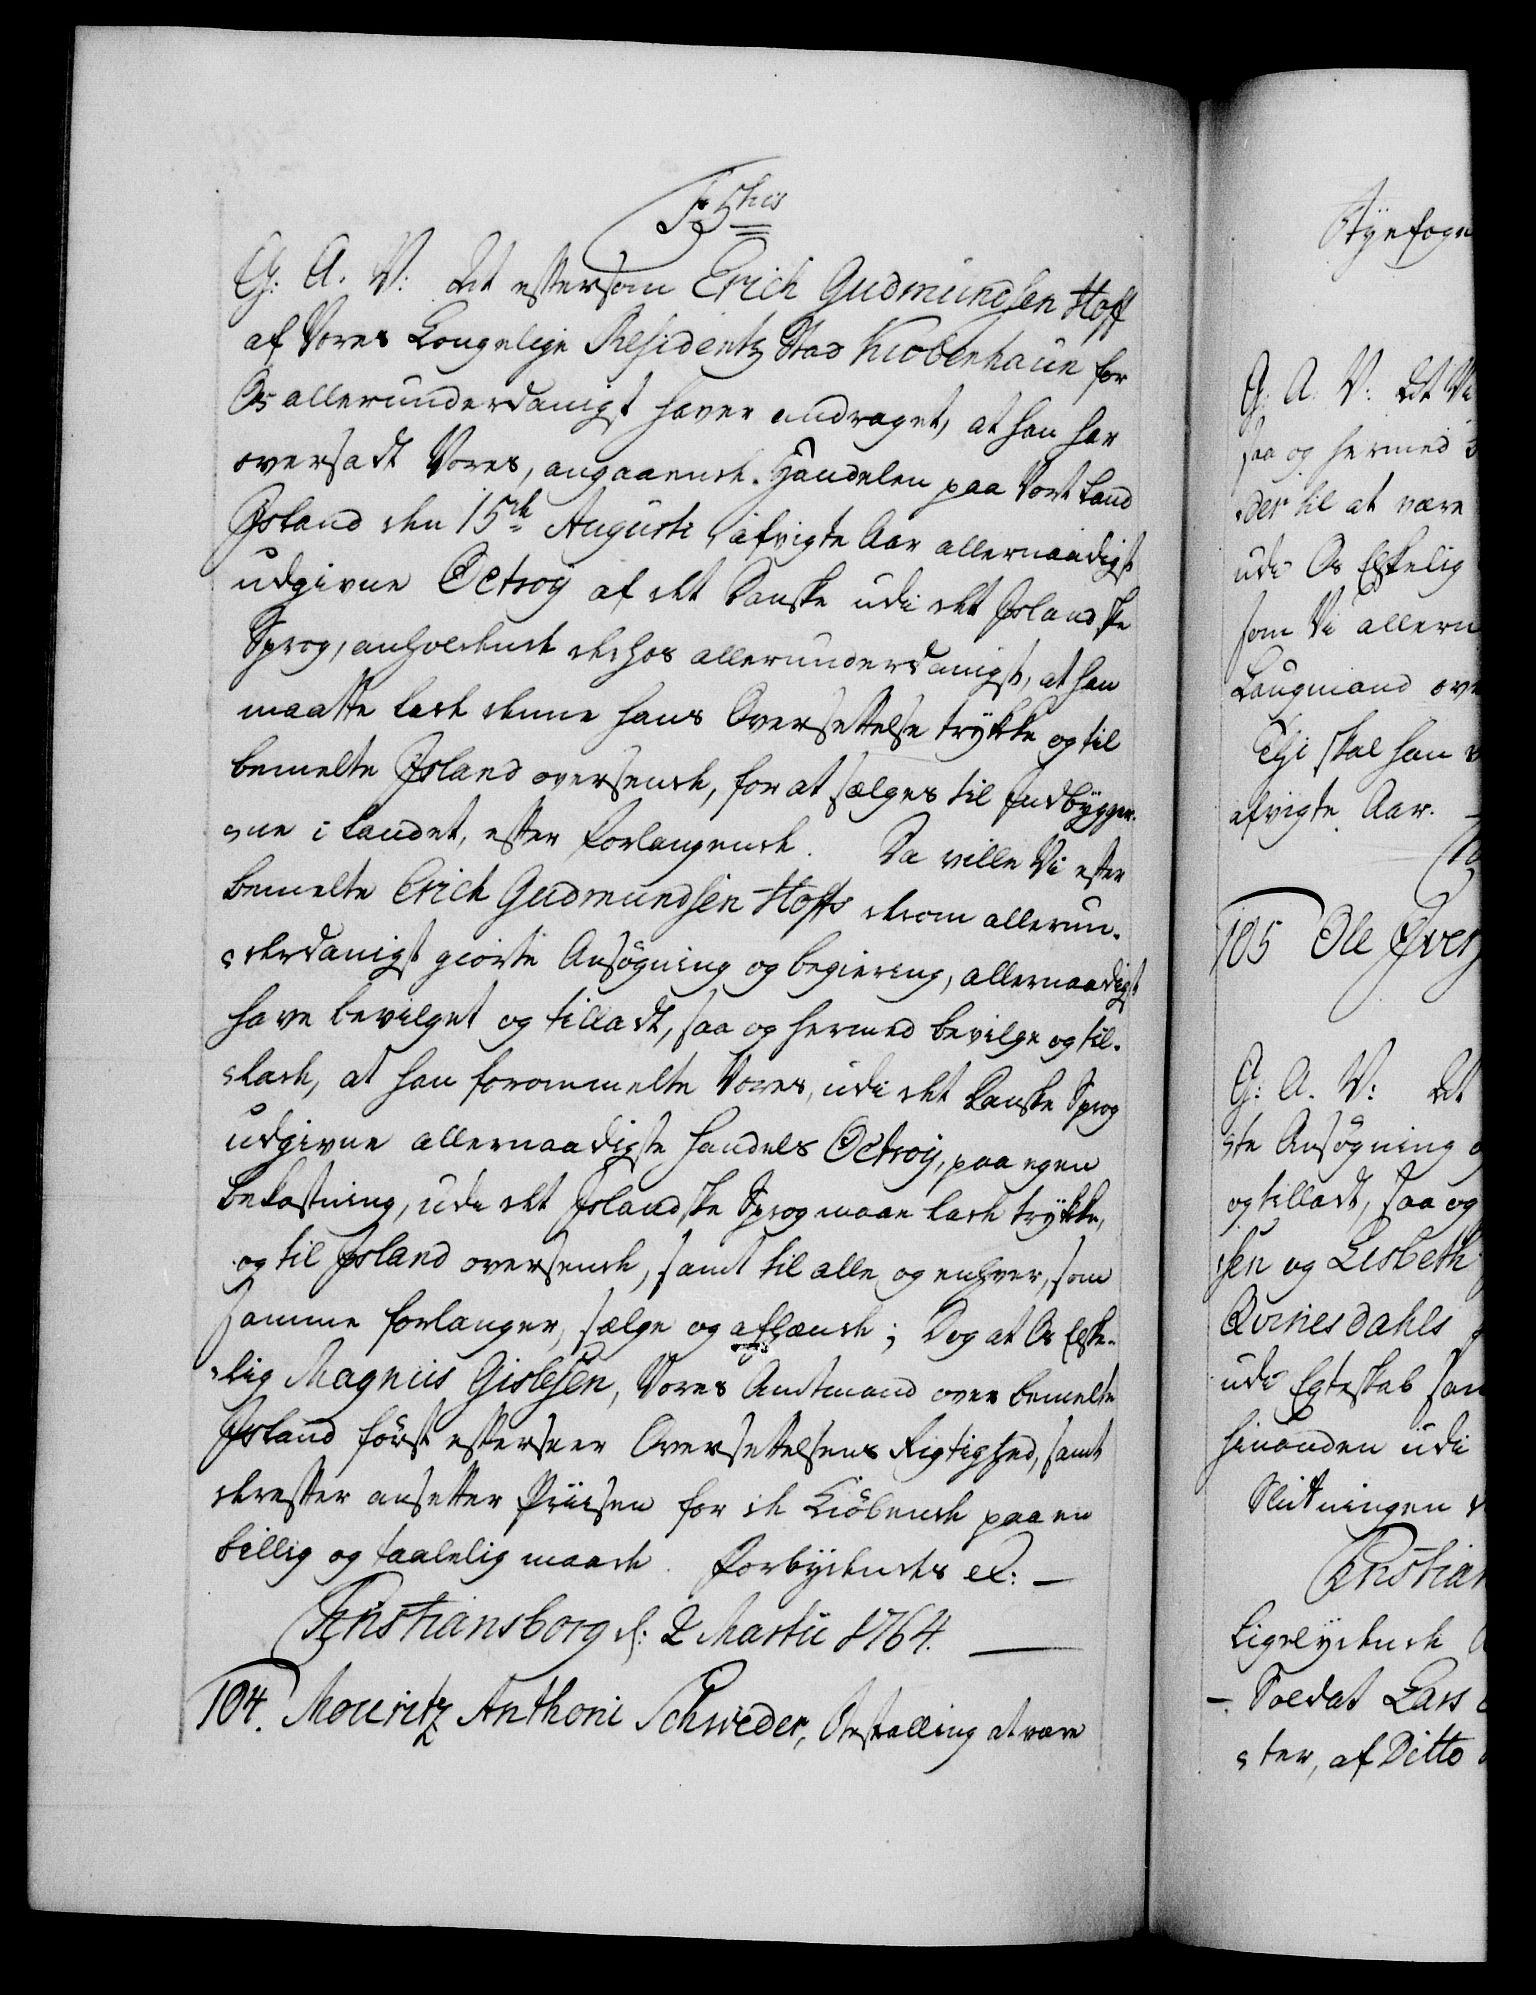 F5<sup>tus</sup>
G: A: V: Vdt eftersom Erich Gudmundsen Hoff
af Vores Kongelige Residentz Stad Kiobenhaun for
Os allerunderdanigst haver andraget, at han har
oversadt Vores, angaaende Handelen paa Vort Land
Island den 15de Augusti afvigte Aar allernaadigst
udgivne Octroy af det Danske udi det Islandske
Sprog, anholdende derhos allerunderdanigst, at han
maatte lade denne hans Oversettelse trykke og til
bemelte Island oversende, for at sælges til Indbygger-
ne i Landet, efter Forlangende. Da ville Vi efter
bemelte Erich Gudmundsen Hoffs derom allerun-
derdanigst giorte Ansøgning og begiering, allernaadigst
have bevilget og tilladt, saa og hermed bevilge og til-
lade, at han forommelte Vores, udi det Danske Sprog
udgivne allernaadigste Handels Octroy, paa egen
bekostning, udi det Islandske Sprog maae lade trykke,
og til Island oversende, samt til alle og enhver, som
samme forlanger, sælge og afhænde; Dog at Os Elske-
lig Magnus Gislesen, Vores Amtmand over bemelte
Island först efterseer Oversettelsens Rigtighed, samt
derefter ansetter Priisen for de Kiöbende paa en
billig og taalelig maade. Forbydendes etc: —
Christiansborg d: 2 Martii 1764. —
104. Mouritz Anthoni Schweder, Bestalling at være
Byefoge
G: A: V: Vdt Vi
saa og hermed
der til at være
udi Os Elskelig
som Vi allern
Laugmand ove
Thi skal han
afvigte Aar.
105 Ole Iver
G: A: V: Vdt
ste Ansøgning
og tilladt, saa og
sen og Lisbeth
Qvinesdahls
udi Egteskab sam
hinanden udi
Slutningen
Christian
Ligelydende
— Soldat Lars
ster, af Ditto